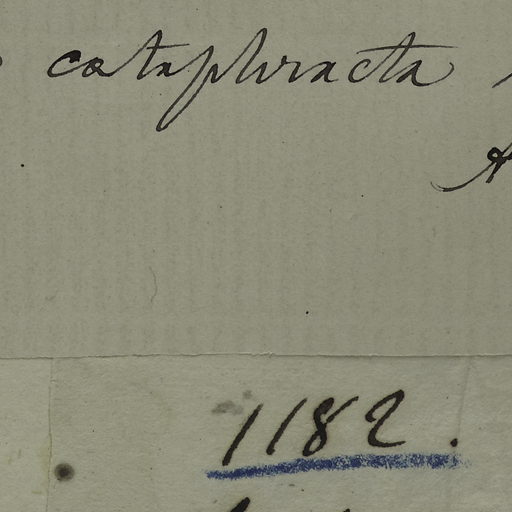 cataphracta
1182.